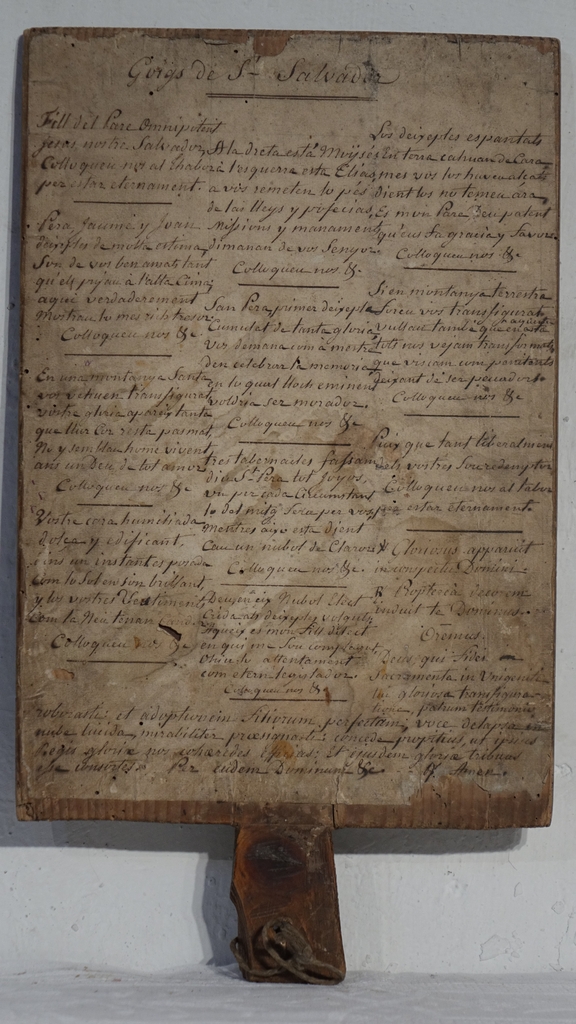 Goigs de St. Salvador
Fill del Pare Omnipotent
Jesus nostre Salvador,
Colloqueu nos al thabor
per estar eternament.
Pera, Jaume, y Joan
deixples de molta estima
Son de vos ben amats tant
qu'els pujau á l'alta Cima;
aquí verdaderement
Mostrau lo mes rich tresor
Colloqueu nos &c.
En una montanya Santa
vos vetuen transfigurat,
vostra gloria apareix tanta
que llur Cor resta pasmat,
No y semblau home vivent
ans un Deu de tot amor,
Colloqueu nos &c
Vostra cara humiliada
dolça y edificant,
ens un instant es posada
com lo Sol en son brillant,
y los vostres Vestiments
Com la Neu tenan
Colloqueu nos &c
A la dreta está Moysés
l'esquerra esta Elías,
a vos remeten los pés
de las lleys y profecias,
Missions y manaments
dimanan de vos Senyor.
Colloqueu nos &.
San Pera primer deixeple
Cumulat de tanta gloria
Vos demana com á mestre
den celebrar la memoria
en lo qual lloch eminent
voldria ser morador.
Colloqueu nos &c
tres tabernacles fassam
diu St. Pera tot joyos,
un per cada Circumstant
lo del mitg Sera per vos,
Mentres aixo esta dient
Cau un nubol de Claror
Colloqueu nos &c.
Deu en eix Nubol Estet
Crida als deixeples volguts
Aqueix es mon Fill dilet
en qui me Sou complagut,
Ohiu lo attentament
com etern legislador.
Colloqueu nos &c
Los deixeples espantats
En terra cahuan de Cara
mes vos los haveu alçats
dient los no temeu ára,
Es mon Pare Deu potent
qu'eus fa gracia y favor
Colloqueu nos &c.
Si en montanya terrestra
foreu vos transfigurat
vullau també que
tots nos vejam transformats
que viscam com penitents
deixant de ser pecador
Colloqueu nos &c
Puix que tant liberalment
dels vostres Sou redemptor
Colloqueu nos al tabor
per estar eternament
℣ Gloriosus apparuisti
in conspectu Domini.
℟ Propterea decorem
induit te Dominus.
Orémus.
Deus, qui fidei
Sacramenta in Unigeniti
tui gloriosa transfigura-
tione, patrum testimonio
roborasti; et adoptionem filiorum perfectam, voce delapsa in
nube lucida, mirabiliter præsignasti: concede propitius, ut ipsius
Regis gloriæ nos cohæredes efficias; et ejusdem gloriæ tribuas
esse consortes. Per eudem Dominum &c. ℟ Amen.